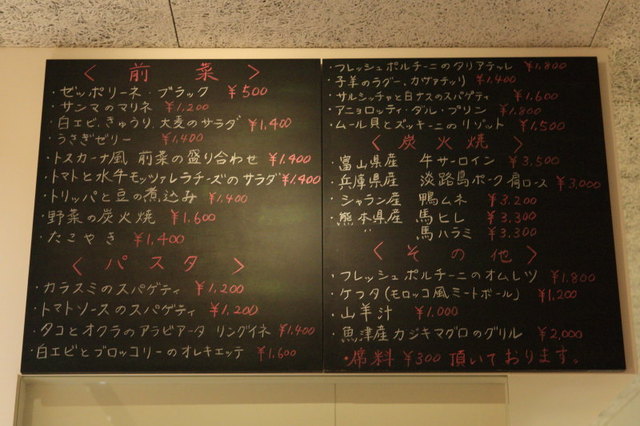 〈 前 菜 〉
・ゼッポリーネ・ブラック ¥500
・サンマのマリネ ¥1,200
・白エビ、きゅうり、大麦のサラダ ¥1,400
・うさぎゼリー ¥1,400
・トスカーナ風 前菜の盛り合わせ ¥1,400
・トマトと水牛モッツァレラチーズのサラダ ¥1,400
・トリッパと豆の煮込み ¥1,400
・野菜の炭火焼 ¥1,600
・たこやき ¥1,400
〈 パスタ 〉
・カラスミのスパゲティ ¥1,200
・トマトソースのスパゲティ ¥1,200
・タコとオクラのアラビアータ リングイネ ¥1,400
・白エビとブロッコリーのオレキエッテ ¥1,600
・フレッシュポルチーニのタリアテッレ ¥1,800
・子羊のラグー、カヴァテッリ ¥1,400
・サルシッチャと白ナスのスパゲティ ¥1,600
・アニョロッティ・ダル・プリン ¥1,800
・ムール貝とズッキーニのリゾット ¥1,500
〈 炭火焼 〉
・富山県産 牛サーロイン ¥3,500
・兵庫県産 淡路島ポーク肩ロース ¥3,000
・シャラン産 鴨ムネ ¥3,200
・熊本県産 馬ヒレ ¥3,300
〃 馬ハラミ ¥3,300
〈 その他 〉
・フレッシュポルチーニのオムレツ ¥1,800
・ケフタ(モロッコ風ミートボール) ¥1,200
・山羊汁 ¥1,000
・魚津産カジキマグロのグリル ¥2,000
・席料 ¥300 頂いております。